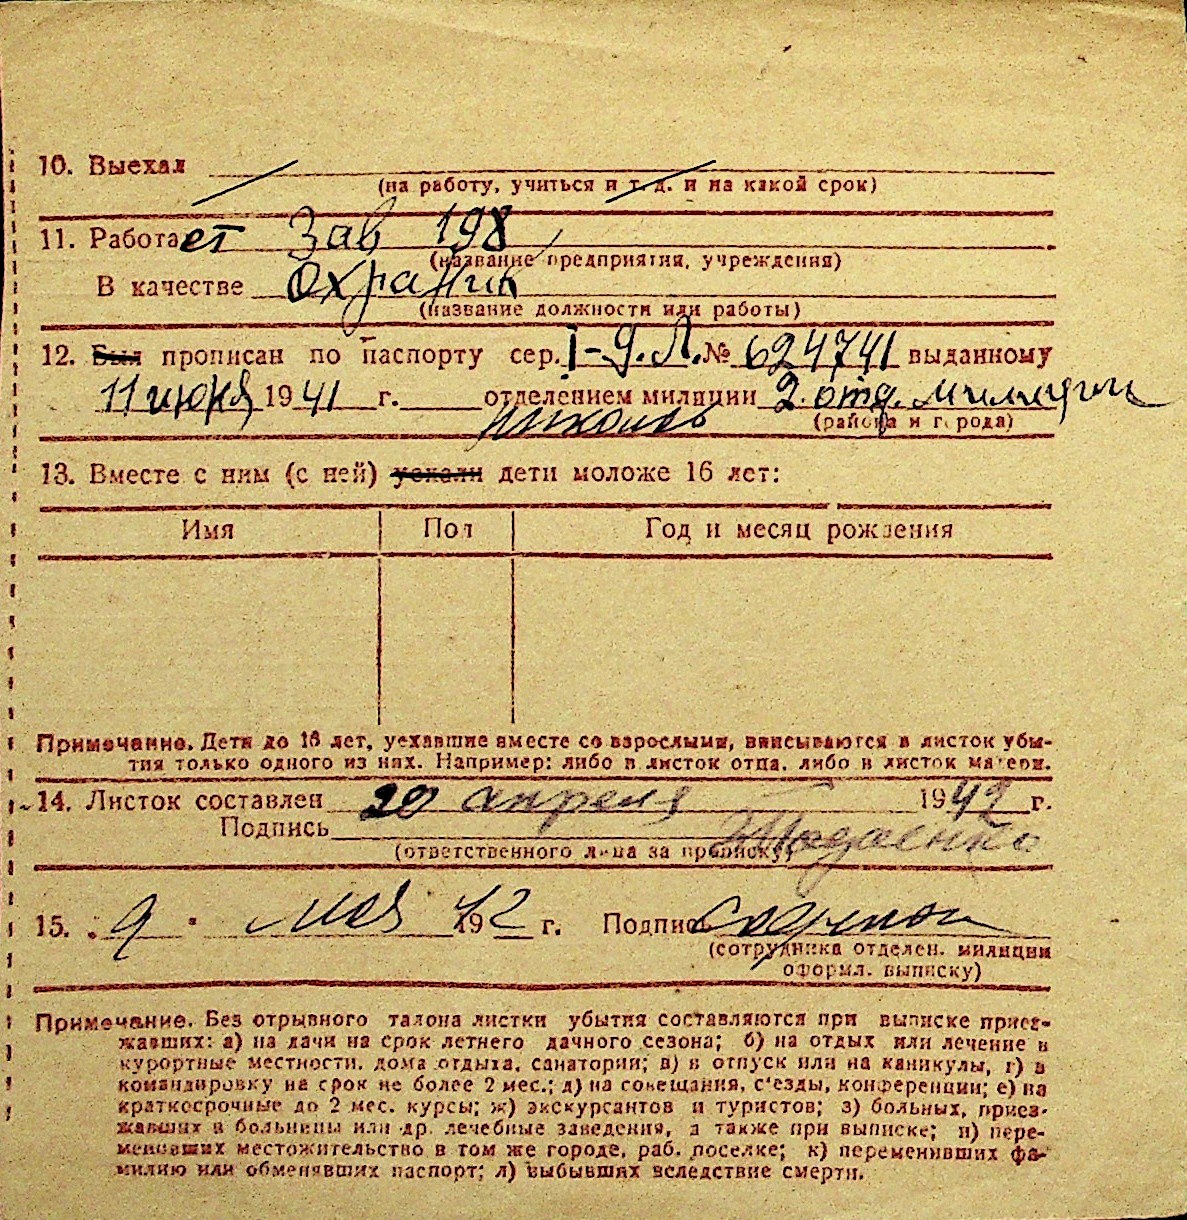 10. Выехал
(на работу, учиться и т. д. и на какой срок)
11. Работает Зав 198
(название предприятия, учреждения)
В качестве Охраник
(название должности или работы)
12. Был прописан по паспорту сер. I-У.Л. № 624741 выданному
11 июня 1941 г. отделением милиции 2. отд. милиции
(района и города)
13. Вместе с ним (с ней) уехали дети моложе 16 лет:
Имя Пол Год и месяц рождения
Примечание. Дети до 16 лет, уехавшие вместе со взрослыми, вписываются в листок убы-
тия только одного из них. Например: либо в листок отца, либо в листок матери.
14. Листок составлен 20 апреля 1942 г.
Подпись
(ответственного лица за прописку)
15. 9 мая 1942 г. Подпись
(сотрудника отделен. милиции
оформл. выписку)
Примечание. Без отрывного талона листки убытия составляются при выписке приез-
жавших: а) на дачи на срок летнего дачного сезона; б) на отдых или лечение в
курортные местности, дома отдыха, санатории; в) в отпуск или на каникулы, г) в
командировку на срок не более 2 мес.; д) на совещания, с'езды, конференции; е) на
краткосрочные до 2 мес. курсы; ж) экскурсантов и туристов; з) больных, приез-
жавших в больницы или др. лечебные заведения, а также при выписке; и) пере-
менивших местожительство в том же городе, раб. поселке; к) переменивших фа-
милию или обменявших паспорт; л) выбывших вследствие смерти.